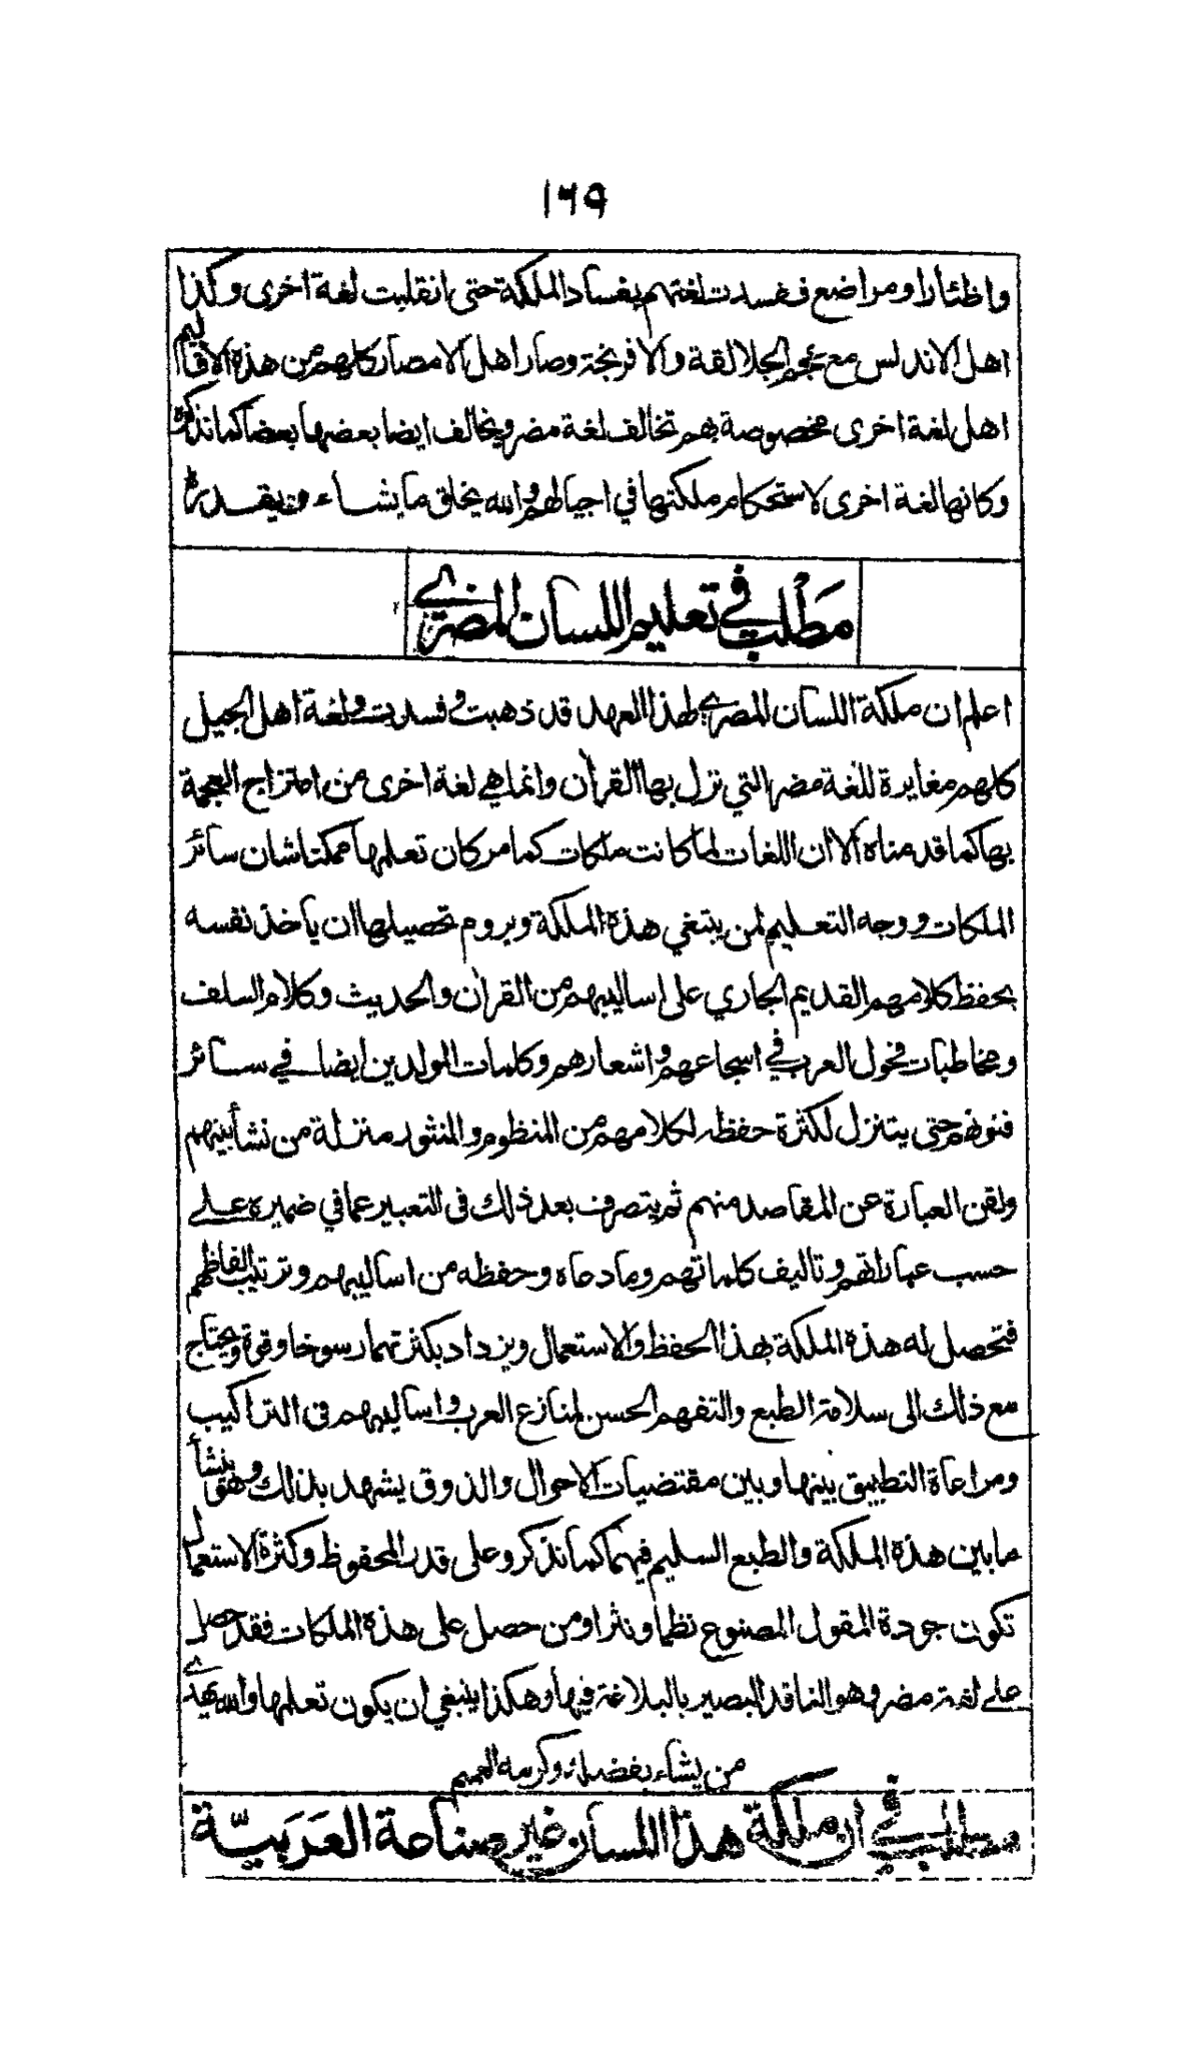 ١٦٩
واظئارا ومراضع ففسدت لغتهم بفساد الملكة حتى انقلبت لغة اخرى وكذا
اهل الاندلس مع عجم الجلالقة والافرنجة وصار اهل الامصار كلهم من هذه الاقاليم
اهل لغة اخرى مخصوصة بهم تخالف لغة مضر ويخالف ايضا بعضها بعضا كما نذكره
وكانها لغة اخرى لاستحكام ملكتها في اجيالهم والله يخلق ما يشاء ويقدر
مَطْلب في تعليم اللسان المضري
اعلم ان ملكة اللسان المضري لهذا العهد قد ذهبت وفسدت ولغة اهل الجيل
كلهم مغايرة للغة مضر التي نزل بها القرآن وانما هي لغة اخرى من امتزاج العجمة
بها كما قدمناه الا ان اللغات لما كانت ملكات كما مر كان تعلمها ممكنا شان سائر
الملكات ووجه التعليم لمن يبتغي هذه الملكة ويروم تحصيلها ان ياخذ نفسه
بحفظ كلامهم القديم الجاري على اساليبهم من القرآن والحديث وكلام السلف
ومخاطبات فحول العرب في اسجاعهم واشعارهم وكلمات المولدين ايضا في سائر
فنونهم حتى يتنزل لكثرة حفظه لكلامهم من المنظوم والمنثور منزلة من نشأ بينهم
ولقن العبارة عن المقاصد منهم ثم يتصرف بعد ذلك في التعبير عما في ضميره على
حسب عباراتهم وتاليف كلماتهم وما دعاه وحفظه من اساليبهم وترتيب الفاظهم
فتحصل له هذه الملكة بهذا الحفظ والاستعمال ويزداد بكثرتهما رسوخا وقوة ويحتاج
مع ذلك الى سلامة الطبع والتفهم الحسن لمنازع العرب واساليبهم في التراكيب
ومراعاة التطبيق بينها وبين مقتضيات الاحوال والذوق يشهد بذلك وهو ينشأ
ما بين هذه الملكة والطبع السليم فيهما كما نذكر وعلى قدر المحفوظ وكثرة الاستعمال
تكون جودة المقول المصنوع نظما ونثرا ومن حصل على هذه الملكات فقد حصل
على لغة مضر وهو الناقد البصير بالبلاغة فيها وهكذا ينبغي ان يكون تعلمها والله يهدي
من يشاء بفضله وكرمه العميم
مطلب في ان ملكة هذا اللسان غير صناعة العَرَبيّة